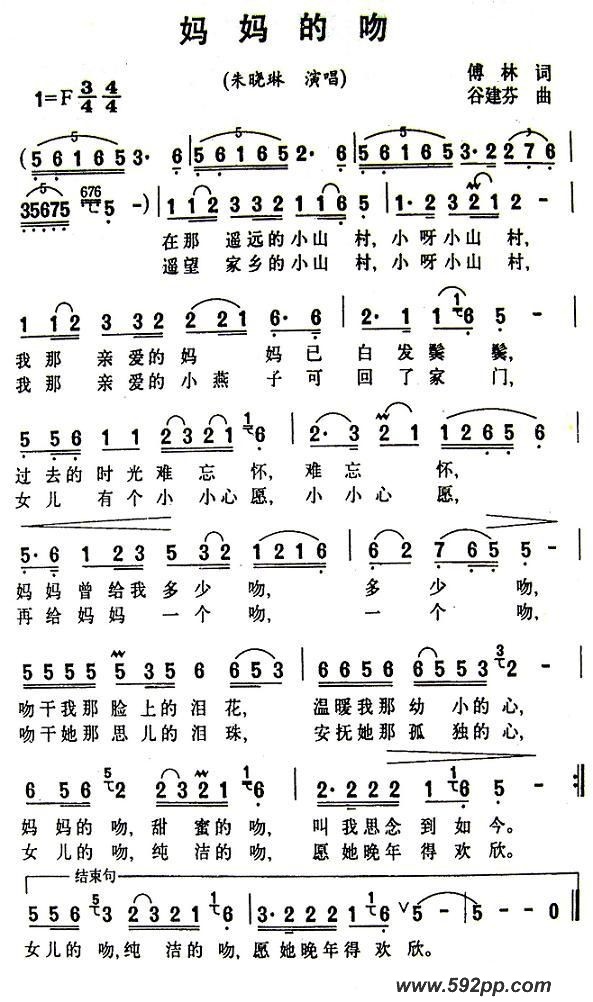 妈妈的吻
(朱晓琳 演唱)
傅林 词
1=F 3/4 4/4
谷建芬 曲
(5 6 1 6 5 3· 6 | 5 6 1 6 5 2· 6 | 5 6 1 6 5 3· 2 2 7 6 |
35675 676 5 -) | 1 1 2 3 3 2 2 1 1 6 5 | 1· 2 3 2 1 2 - |
在那 遥远的小山 村, 小呀小山 村,
遥望 家乡的小山 村, 小呀小山 村,
1 1 2 3 3 2 2 2 1 6· 6 | 2· 1 1 1 6 5 - |
我那 亲爱的妈 妈已 白发鬓 鬓,
我那 亲爱的小燕 子可 回了家 门,
5 5 6 1 1 2 3 2 1 1 6 | 2· 3 2 1 1 2 6 5 6 |
过去的时光难忘 怀, 难忘 怀,
女儿 有个小 小心愿, 小小心 愿,
5· 6 1 2 3 5 3 2 1 2 1 6 | 6 2 7 6 5 5 - |
妈妈曾给我多少吻, 多少 吻,
再给妈妈 一个吻, 一个 吻,
5 5 5 5 5 3 5 6 6 5 3 | 6 6 5 6 6 5 5 3 3 2 - |
吻干我那脸上的泪花, 温暖我那幼小的心,
吻干她那思儿的泪珠, 安抚她那孤独的心,
6 5 6 5 2 2 3 2 1 1 6 | 2· 2 2 2 1 1 6 5 - :||
妈妈的吻, 甜蜜的吻, 叫我思念到如今。
女儿的吻, 纯洁的吻, 愿她晚年得欢欣。
结束句
5 5 6 5 3 2 3 2 1 1 6 | 3· 2 2 2 1 1 6 V 5 - 5 - - 0 ||
女儿的吻,纯洁的吻,愿她晚年得欢欣。
www.592pp.com